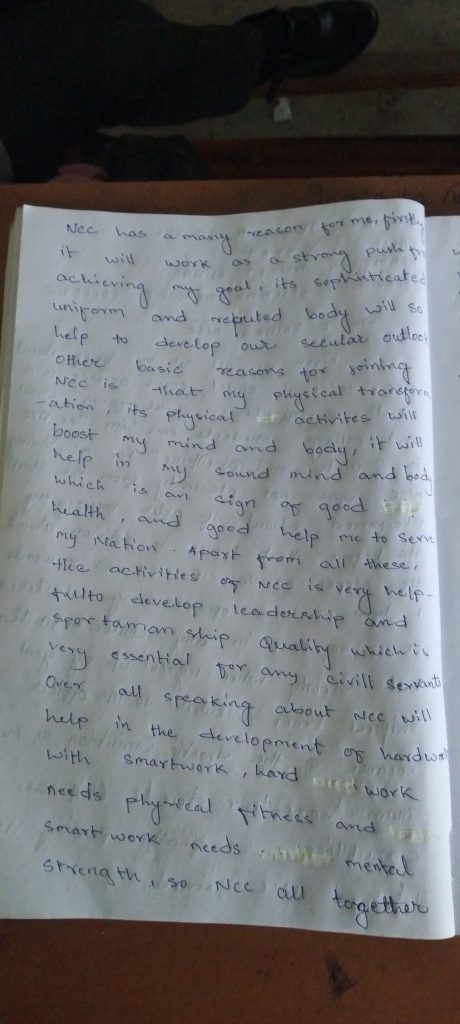 NCC has a many reason for me, firstly
it will work as a strong push for
achieving my goal, its sophisticated
uniform and reputed body will so
help to develop our secular outlook
Other basic reasons for joining
NCC is that my physical transform
-ation, its physical activites will
boost my mind and body, it will
help in my sound mind and body
which is an sign of good
health, and good help me to serve
my Nation. Apart from all these,
the activities of NCC is very help-
full to develop leadership and
sportaman ship Quality which is
very essential for any civill servant
Over all speaking about NCC, will
help in the development of hardwork
with smartwork, hard work
needs physical fitness and
smart work needs mental
strength, so NCC all together